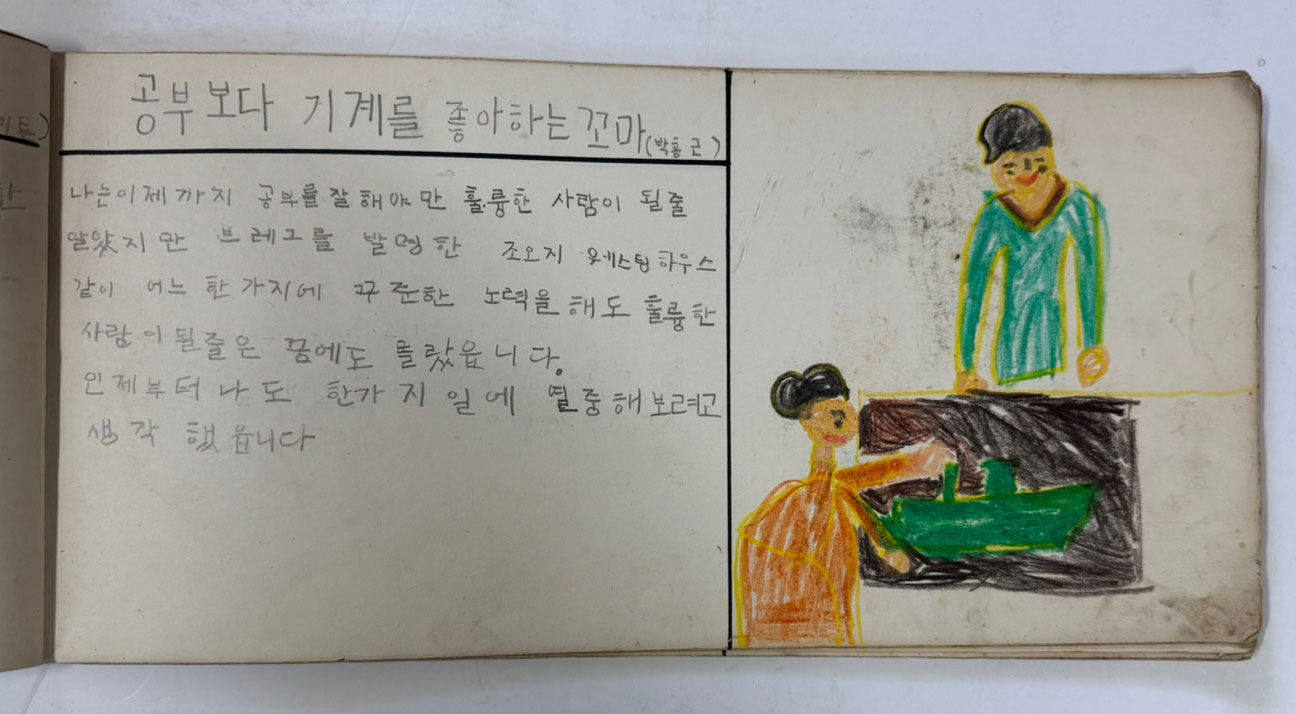 공부보다 기계를 좋아하는 꼬마(박홍근)
나는이제까지 공부를잘해야만 훌륭한 사람이 될줄
알았지만 브레크를 발명한 조오지 웨스팅하우스
같이 어느 한가지에 꾸준한 노력을해도 훌륭한
사람이될줄은 꿈에도 몰랐읍니다.
인제부터 나도 한가지일에 열중해보려고
생각 했읍니다